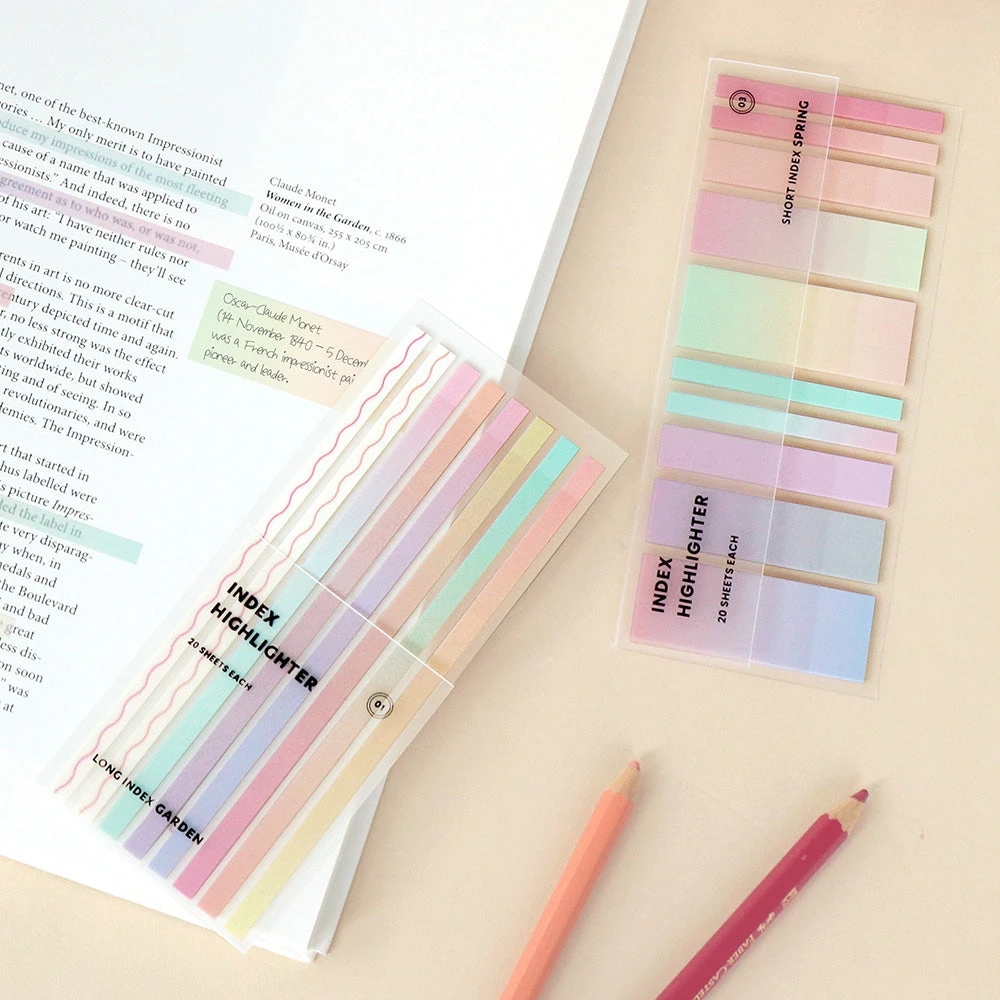 net, one of the best-known Impressionist
ories ... My only merit is to have painted
oduce my impressions of the most fleeting
cause of a name that was applied to
essionists." And indeed, there is no
agreement as to who was, or was not,
of his art: "I have neither rules nor
or watch me painting – they'll see
rents in art is no more clear-cut
directions. This is a motif that
entury depicted time and again.
r, no less strong was the effect
tly exhibited their works
ts worldwide, but showed
ting and of seeing. In so
revolutionaries, and were
demies. The Impression-
rt that started in
hus labelled were
s picture Impres-
ded the label in
te very disparag-
y when, in
medals and
the Boulevard
and bad
great
less dis-
on soon
" was
at
Claude Monet
Women in the Garden, c. 1866
Oil on canvas, 255 x 205 cm
(100½ x 80¾ in.)
Paris, Musée d'Orsay
Oscar-Claude Monet
(14 November 1840 – 5 Decem
was a French impressionist pai
pioneer and leader.
INDEX
HIGHLIGHTER
20 SHEETS EACH
01
LONG INDEX GARDEN
03
SHORT INDEX SPRING
INDEX
HIGHLIGHTER
20 SHEETS EACH
FABER-CASTEL